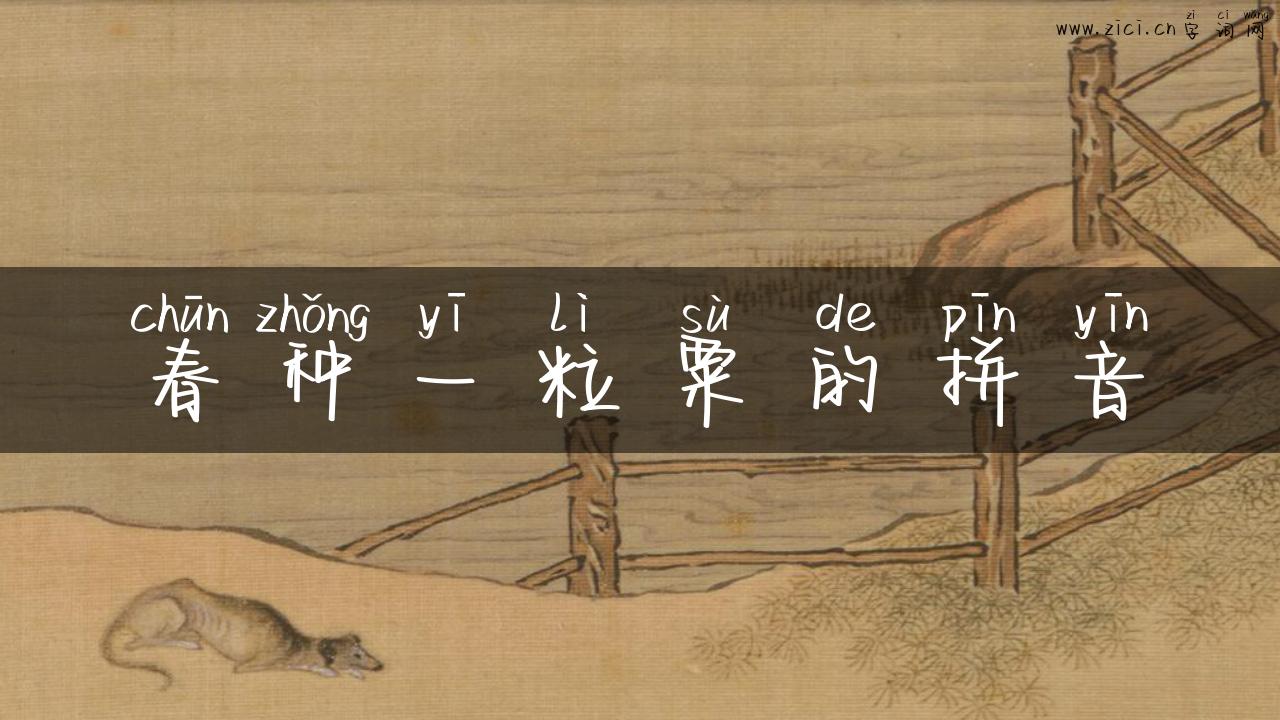 zì cí wǎng
www.zici.cn 字 词 网
chūn zhǒng yī lì sù de pīn yīn
春 种 一 粒 粟 的 拼 音